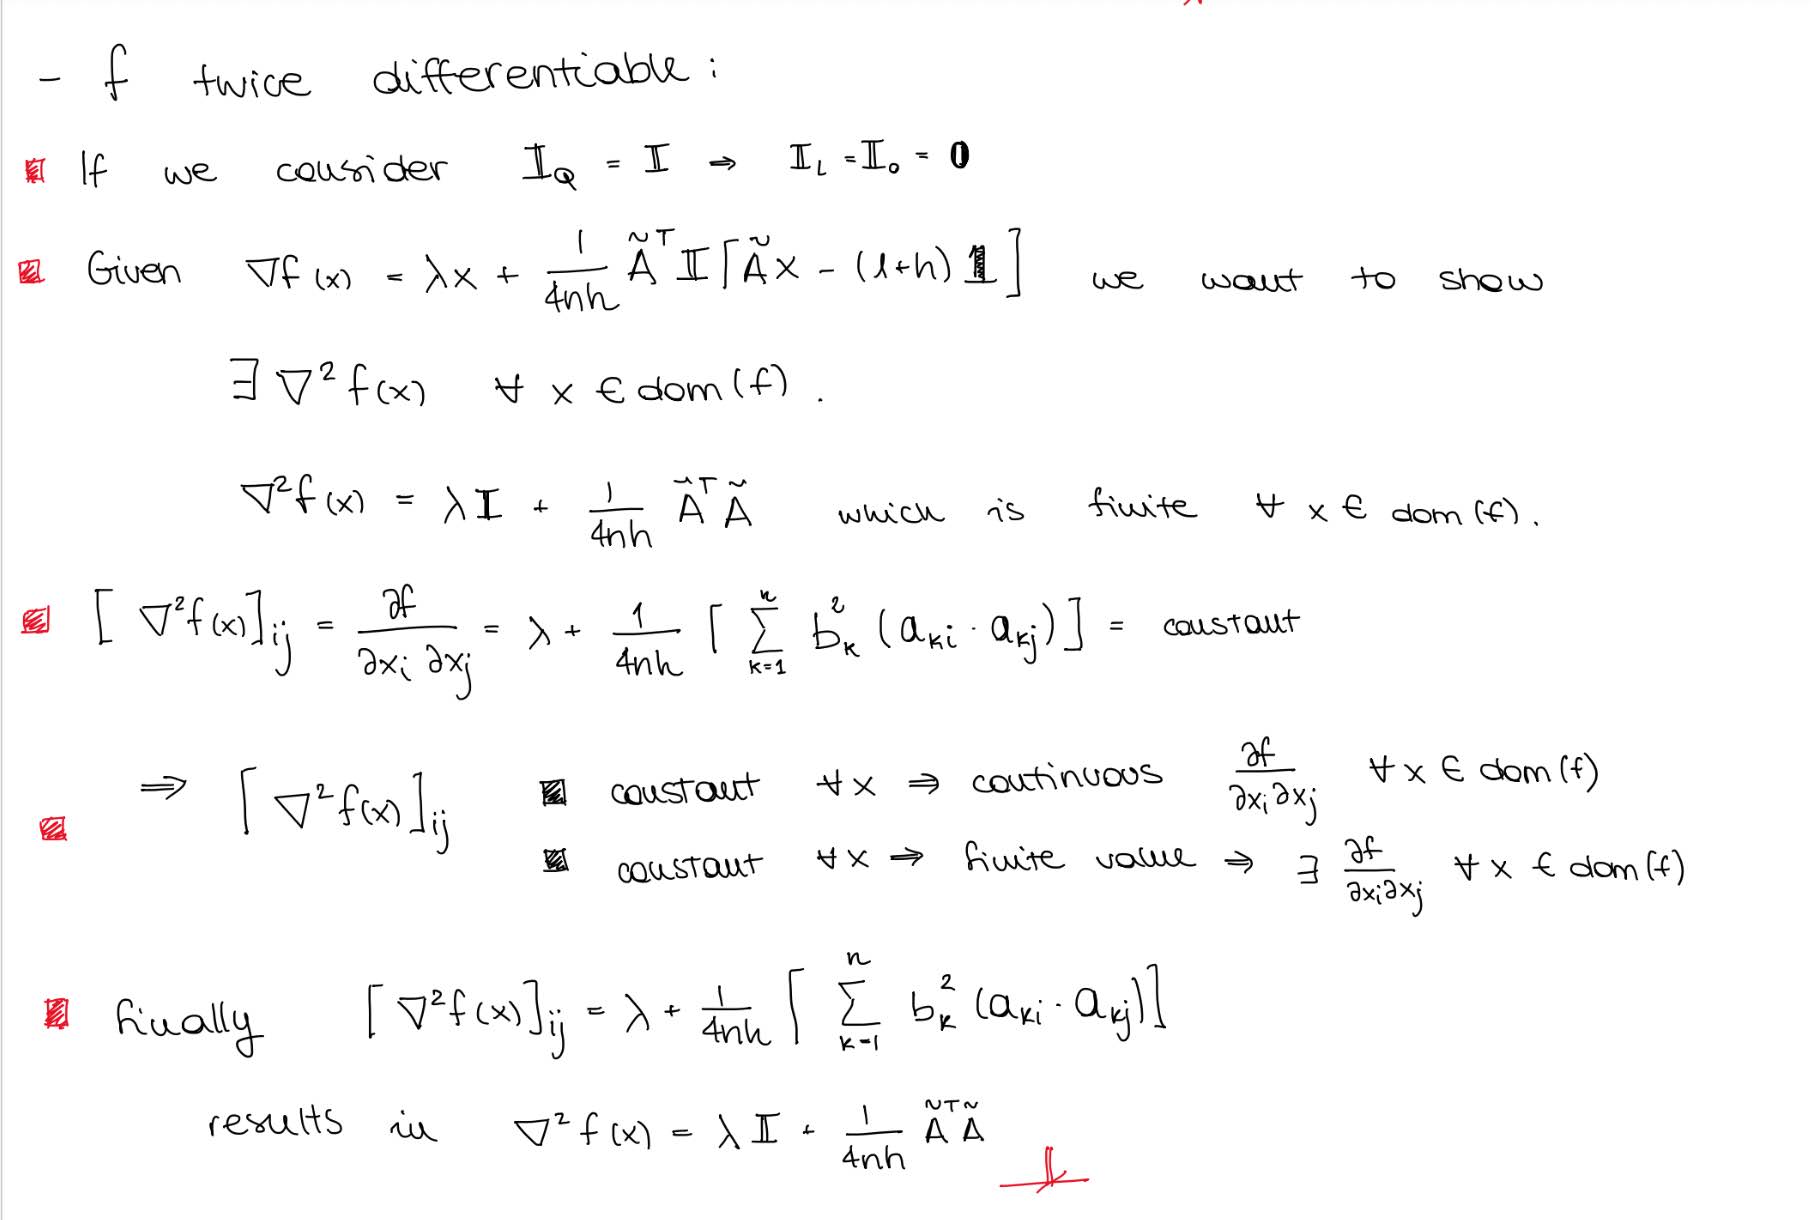 - f twice differentiable:
If we consider 𝕀_Q = 𝕀 ⇒ 𝕀_L = 𝕀_0 = 0
Given ∇f(x) = λx + 1/(4nh) Ã^T 𝕀 [Ãx - (1+h) 𝟙] we want to show
∃ ∇²f(x) ∀ x ∈ dom(f).
∇²f(x) = λ𝕀 + 1/(4nh) Ã^T Ã which is finite ∀ x ∈ dom(f).
[∇²f(x)]_ij = ∂f/(∂x_i ∂x_j) = λ + 1/(4nh) [∑_{k=1}^{n} b_k² (a_ki · a_kj)] = constant
⇒ [∇²f(x)]_ij constant ∀x ⇒ continuous ∂f/(∂x_i ∂x_j) ∀ x ∈ dom(f)
constant ∀x ⇒ finite value ⇒ ∃ ∂f/(∂x_i ∂x_j) ∀ x ∈ dom(f)
finally [∇²f(x)]_ij = λ + 1/(4nh) [∑_{k=1}^{n} b_k² (a_ki · a_kj)]
results in ∇²f(x) = λ𝕀 + 1/(4nh) Ã^T Ã